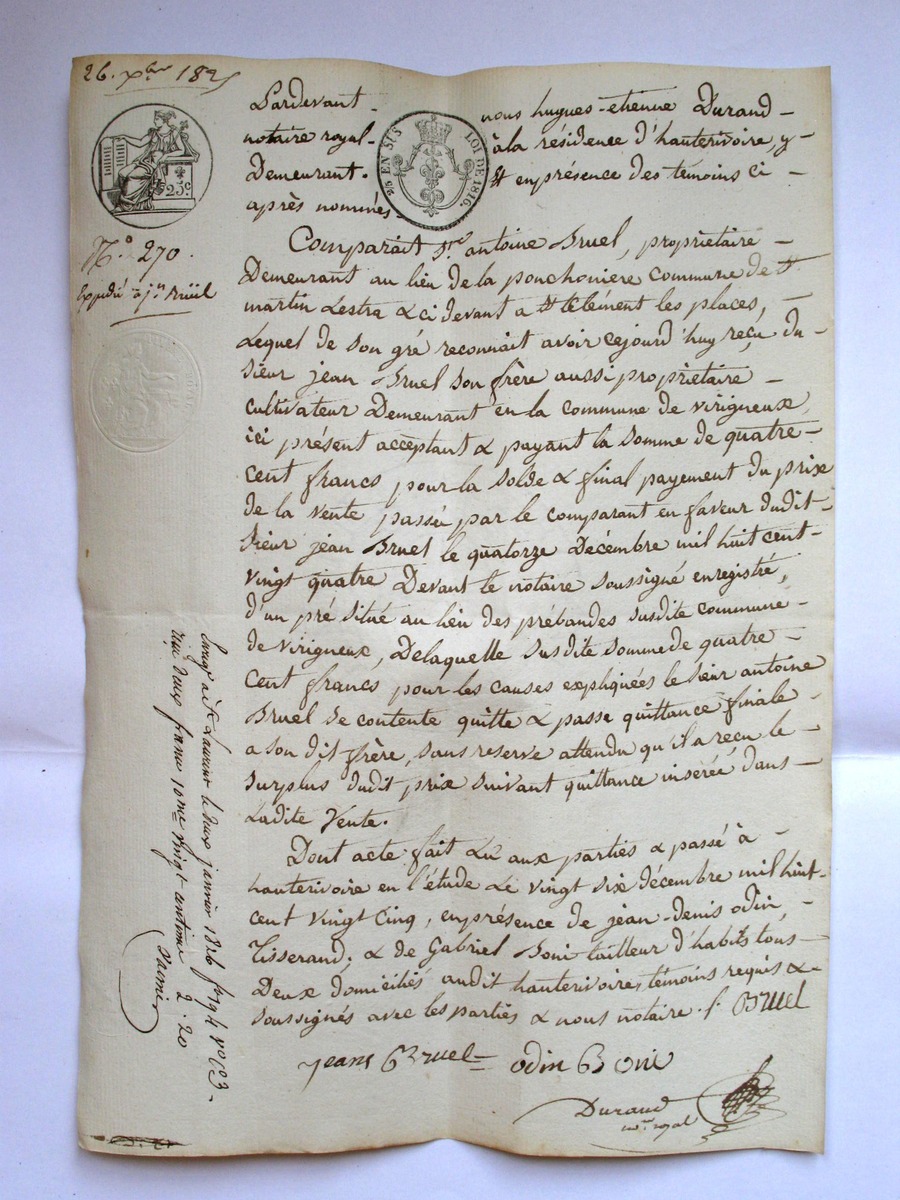 26. xbre 1825
Pardevant - nous hugues-etienne Durand -
notaire royal - à la résidence d'hauterivoire, y -
Demeurant. & en présence des témoins ci -
après nommés.
25c
25 EN SUS LOI DE 1816.
N.o 270.
Expédié à jn Bruel
Comparait Sr. antoine Bruel, propriétaire -
Demeurant au lieu de la ponchoniere commune de St.
martin Lestra & ci devant a St Clément les places, -
Lequel de son gré reconnait avoir cejourd'huy reçu du -
sieur jean Bruel son frère aussi propriétaire -
cultivateur Demeurant en la commune de virigneux,
ici présent acceptant & payant la somme de quatre -
cent francs pour la solde & final payement du prix
de la vente passée par le comparant en faveur dudit -
sieur jean Bruel le quatorze Décembre mil huit cent -
vingt quatre Devant le notaire soussigné enregistré,
d'un pré situé au lieu des prébandes susdite commune -
de virigneux, Delaquelle susdite somme de quatre -
cent francs pour les causes expliquées le sieur antoine
Bruel se contente quitte & passe quittance finale -
a son dit frère, sans reserve attendu qu'il a reçu le -
surplus dudit prix suivant quittance insérée dans -
Ladite Vente.
Dont acte fait Lu aux parties & passé à -
hauterivoire en l'étude Le vingt six décembre mil huit -
cent vingt cinq, en présence de jean-Denis odin, -
Tisserand, & de Gabriel Boni tailleur d'habits tous -
Deux domiciliés audit hauterivoire, témoins requis & -
soussignés avec les parties & nous notaire. Bruel
jean Bruel odin Boni
Durand
no.re royal
Laurent le deux janvier 1826
deux francs 10me vingt centimes
2.20